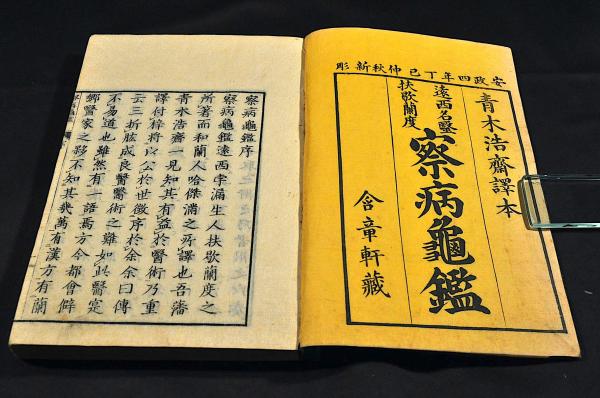 安政四年丁巳仲秋新彫
青木浩齋譯本
遠西名醫
扶歇蘭度
察病龜鑑
含章軒藏
察病龜鑑序
察病龜鑑遠西孛漏生人扶歇蘭度之
所著而和蘭人哈傑滿之所譯也吾藩
青木浩齋一見知其有益於醫術乃重
譯付梓將以公於世徴序於余余曰傳
云三折肱成良醫醫術之難如此醫寔
不易道也雖然有一語焉方今都會僻
鄉醫家之夥不知其幾萬有漢方有蘭